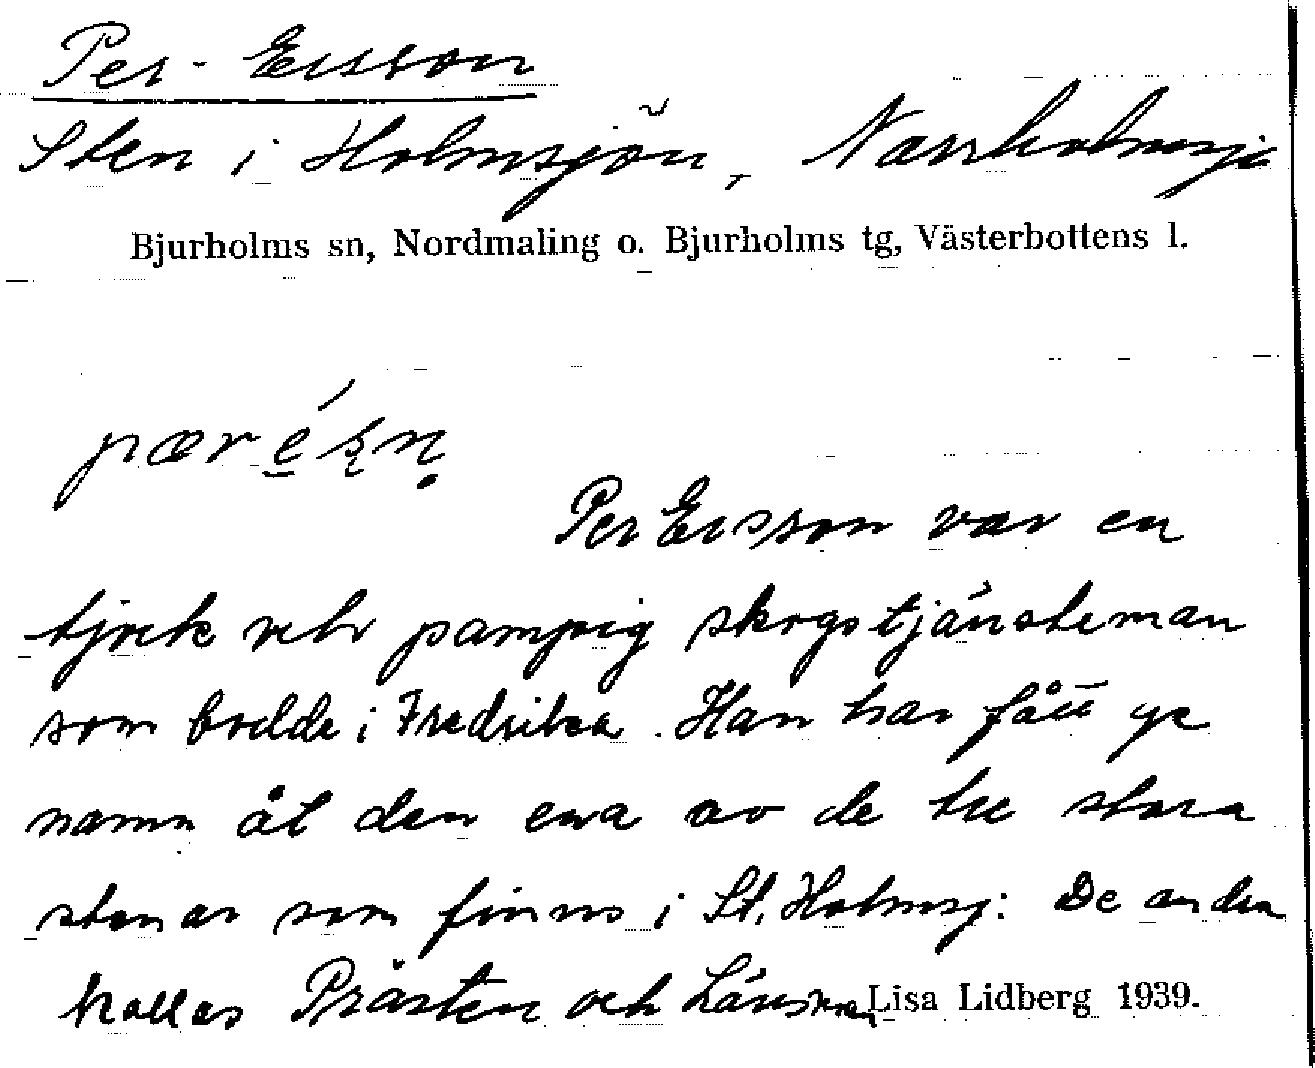 Per-Ersson
Sten i Holmsjön, Norrholmsjö
Bjurholms sn, Nordmaling o. Bjurholms tg, Västerbottens l.
Per Ersson var en
tjock och pampig skogstjänsteman
som bodde i Fredrika. Han har fått ge
namn åt den ena av de tre stora
stenar som finns i St. Holmsj: De andra
kallas Prästen och Länsman
Lisa Lidberg 1939.